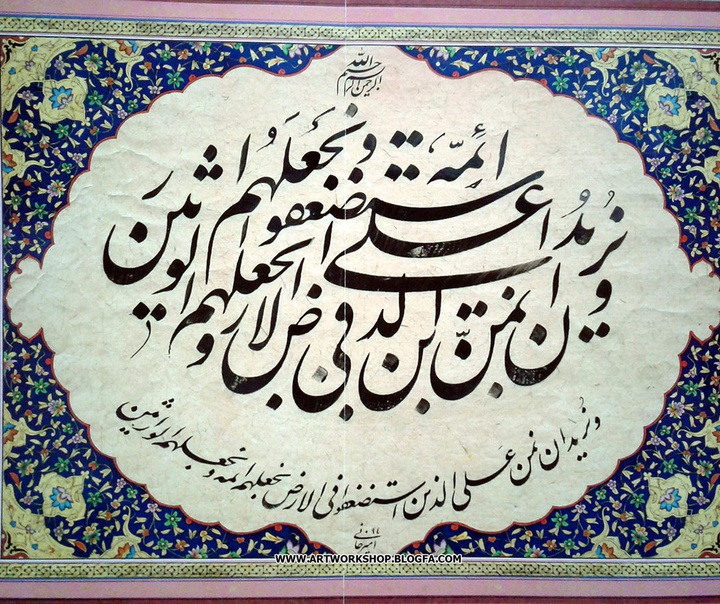 بسم الله الرحمن الرحیم
و نرید ان نمن علی الذین استضعفوا فی الارض و نجعلهم ائمة و نجعلهم الوارثین
و نرید ان نمن علی الذین استضعفوا فی الارض نجعلهم ائمه و نجعلهم الوارثین
WWW.ARTWORKSHOP.BLOGFA.COM